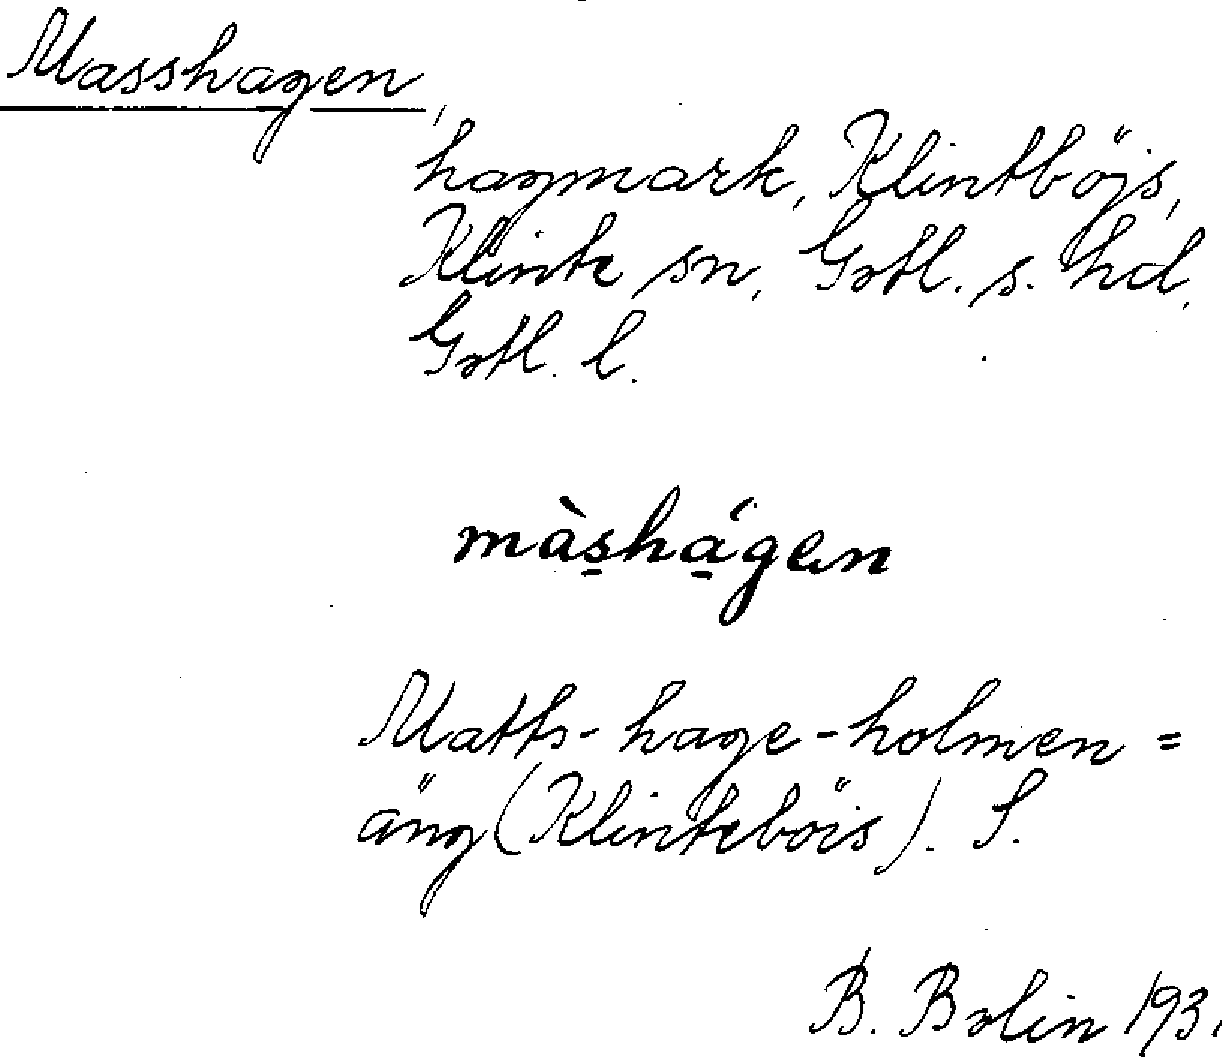 Masshagen,
hagmark, Klintböjs,
Klinte sn, Gotl. s. hd,
Gotl. l.
màs̱há̱gen
Matts-hage-holmen =
äng (Klintebôis). S.
B. Bolin 193.